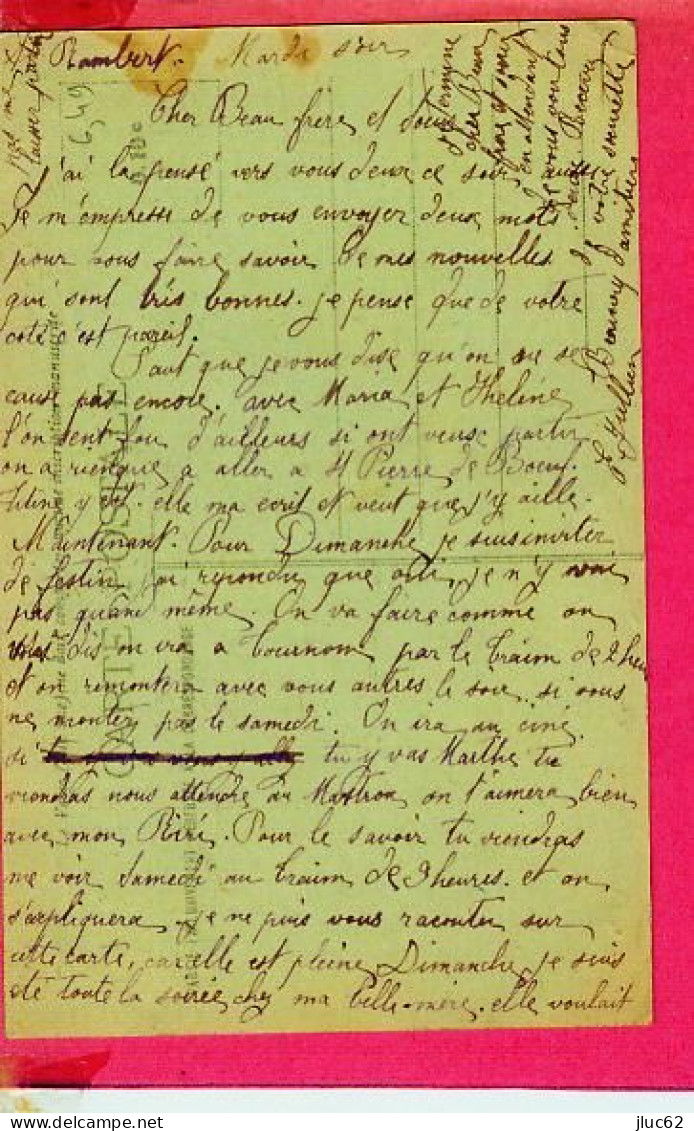 Rambert. Mardi soir
Cher Beau frère et tous
j'ai la pensé vers vous deux ce soir aussi
Je m'empresse de vous envoyer deux mots
pour vous faire savoir de mes nouvelles
qui sont très bonnes. je pense que de votre
coté c'est pareil.
Faut que je vous dise qu'on ne se
cause pas encore. avec Maria et Theline
l'on sent fou d'ailleurs si ont veus partir
on a rienque a aller a St Pierre de Boeuf.
Titine y est. elle ma ecrit et veut que j'y aille.
Maintenant. Pour Dimanche je suis inviter
de festin j'ai repondu que oui, je n'y vai
pas quand même. On va faire comme on
dis on ira a tournon par le traim de 2 heu
et on remontera avec vous autres le soir. si vous
ne montez pas le samedi. On ira au ciné
si tu y vas Marthe tu
viendras nous attendre on t'aimera bien
avec mon Riri. Pour le savoir tu viendras
me voir Samedi au traim de 9 heures. et on
s'arpliquera. je ne puis vous raconter sur
cette carte, car elle est pleine Dimanche je suis
été toute la soirée chez ma belle-mère. elle voulait
pas me
laisser partir
je termine
cher Beau
frère et
en attendant
de vous voir tous
Recevez
de votre
d'amitiés
6,49
A 10 c
CARTE POSTALE
jluc62